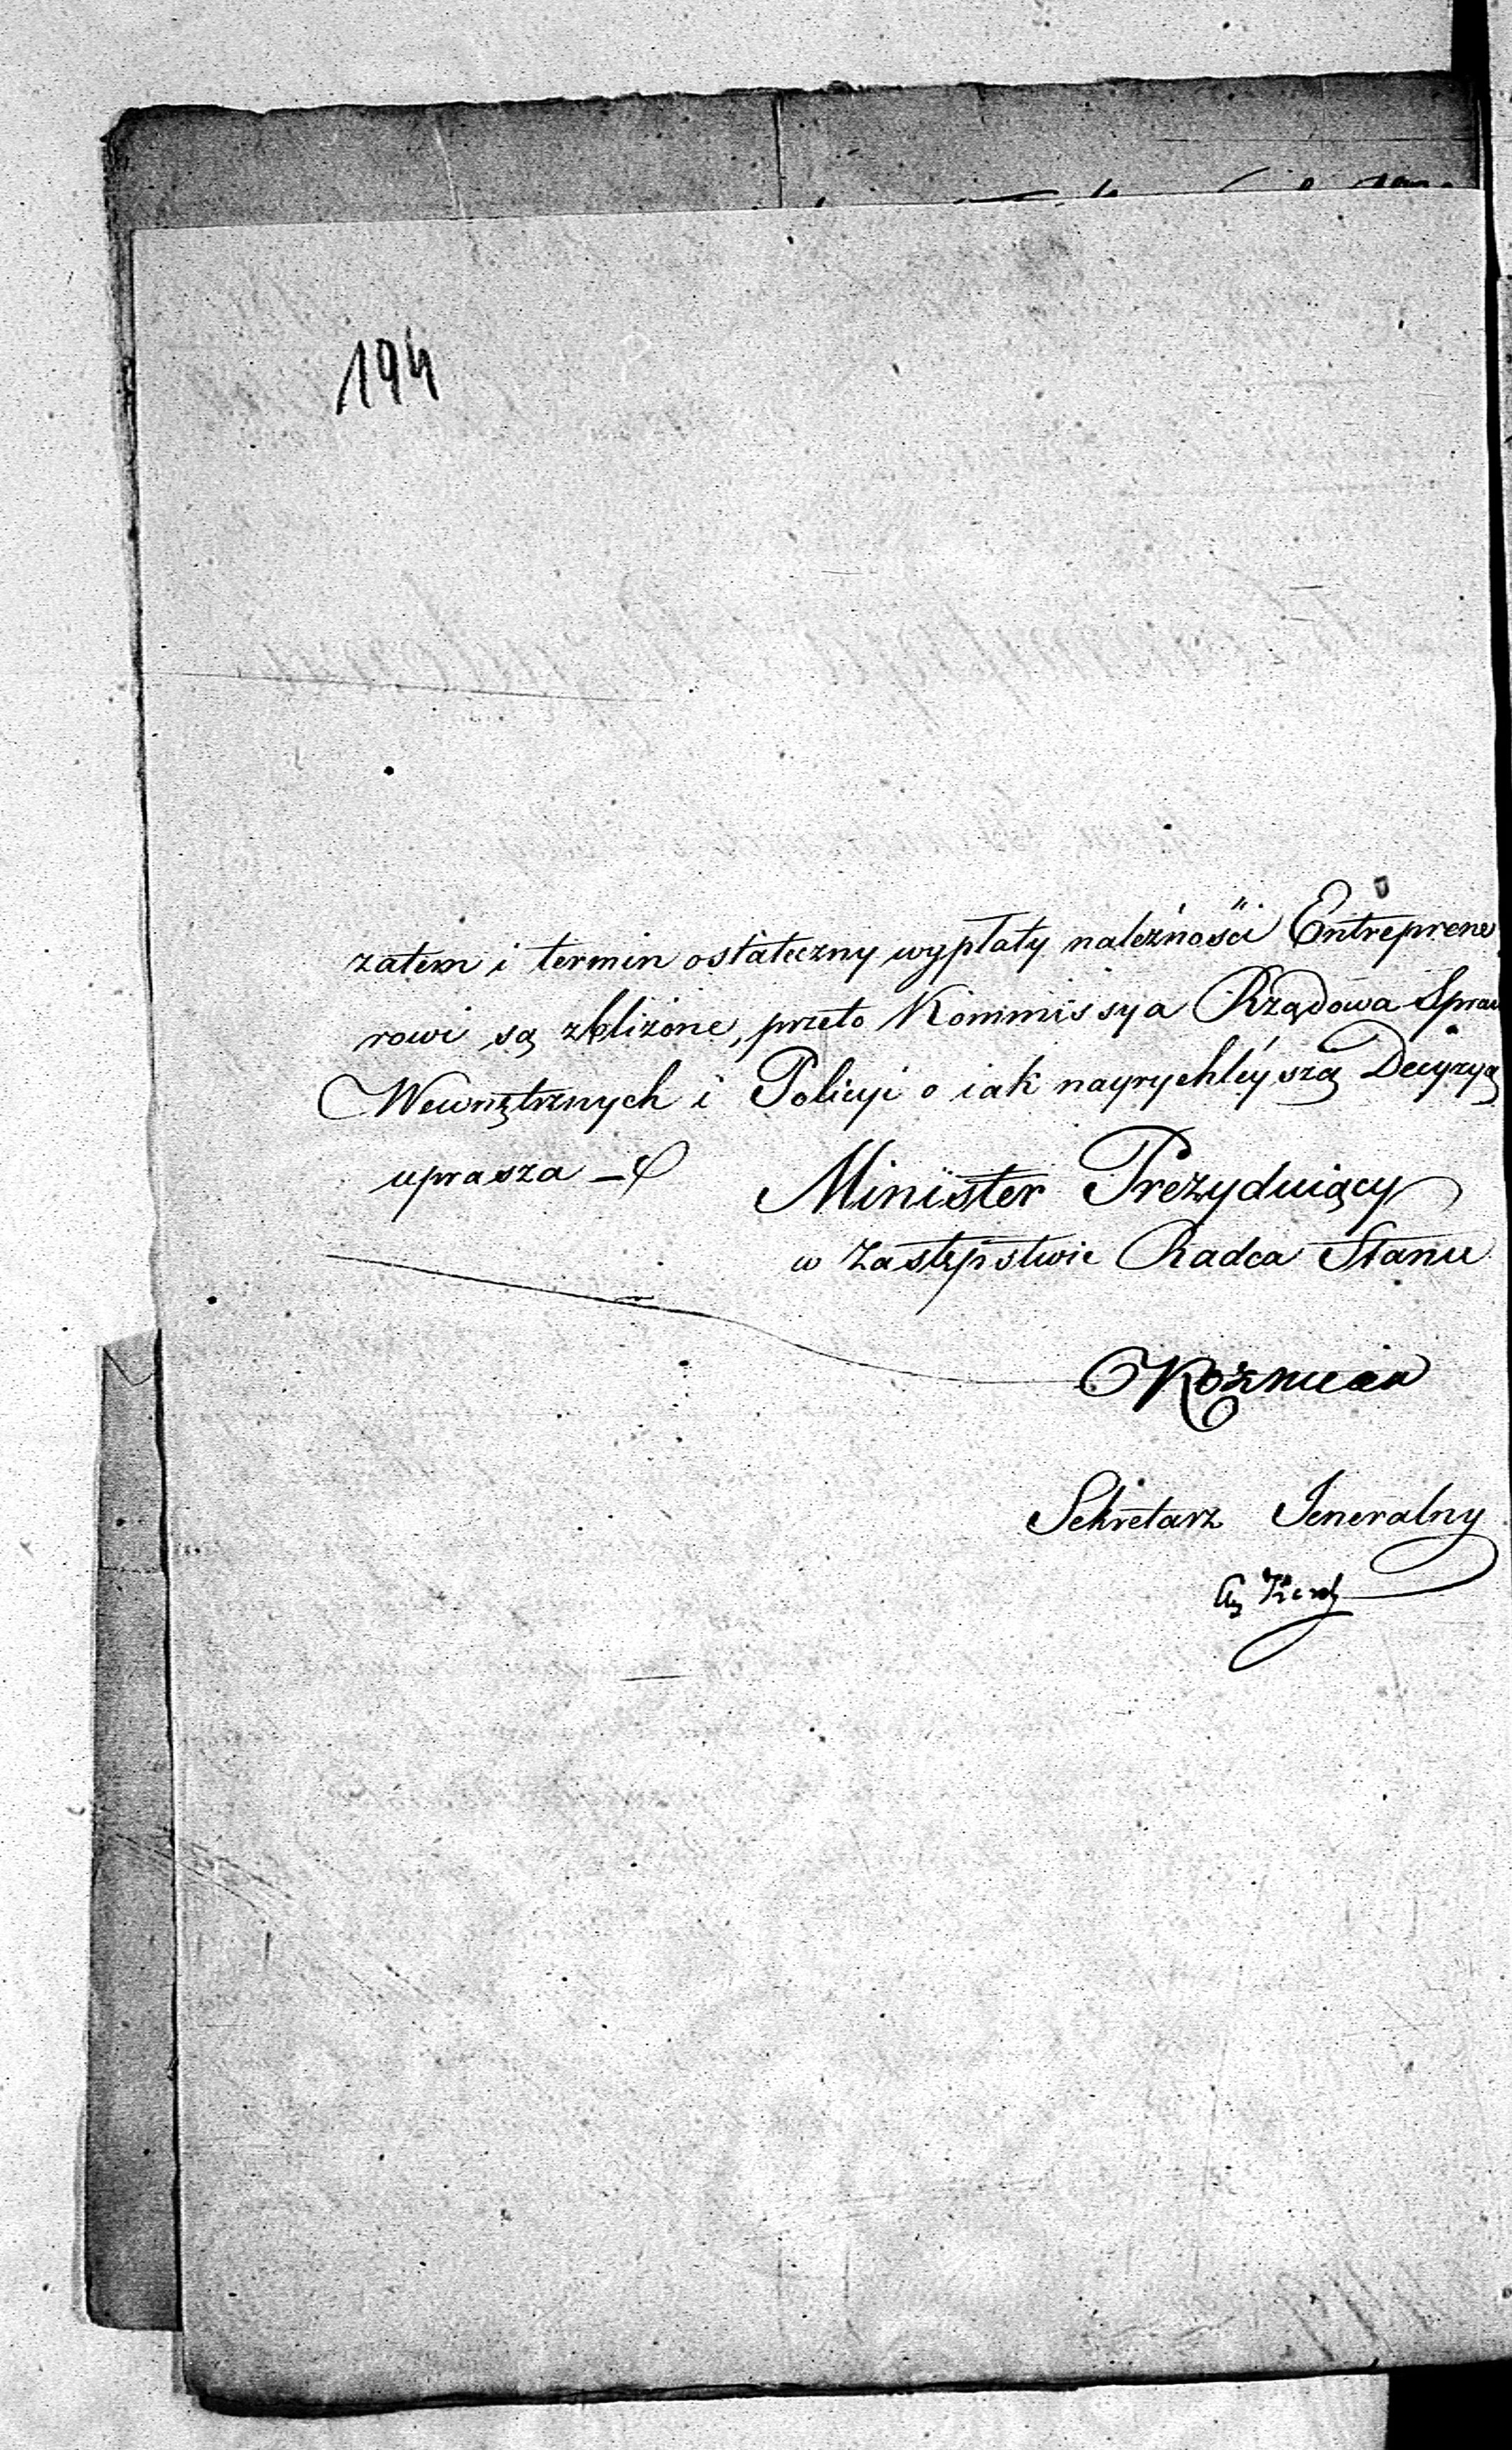 194
zatem i termin ostateczny wypłaty należności Entreprene
rowi są zbliżone, przeto Kommissya Rządowa Spraw
Wewnętrznych i Policyi o iak nayrychleyszą Decyzyą
uprasza
Minister Prezyduiący
w Zastępstwie Radca Stanu
Kozmian
Sekretarz Jeneralny